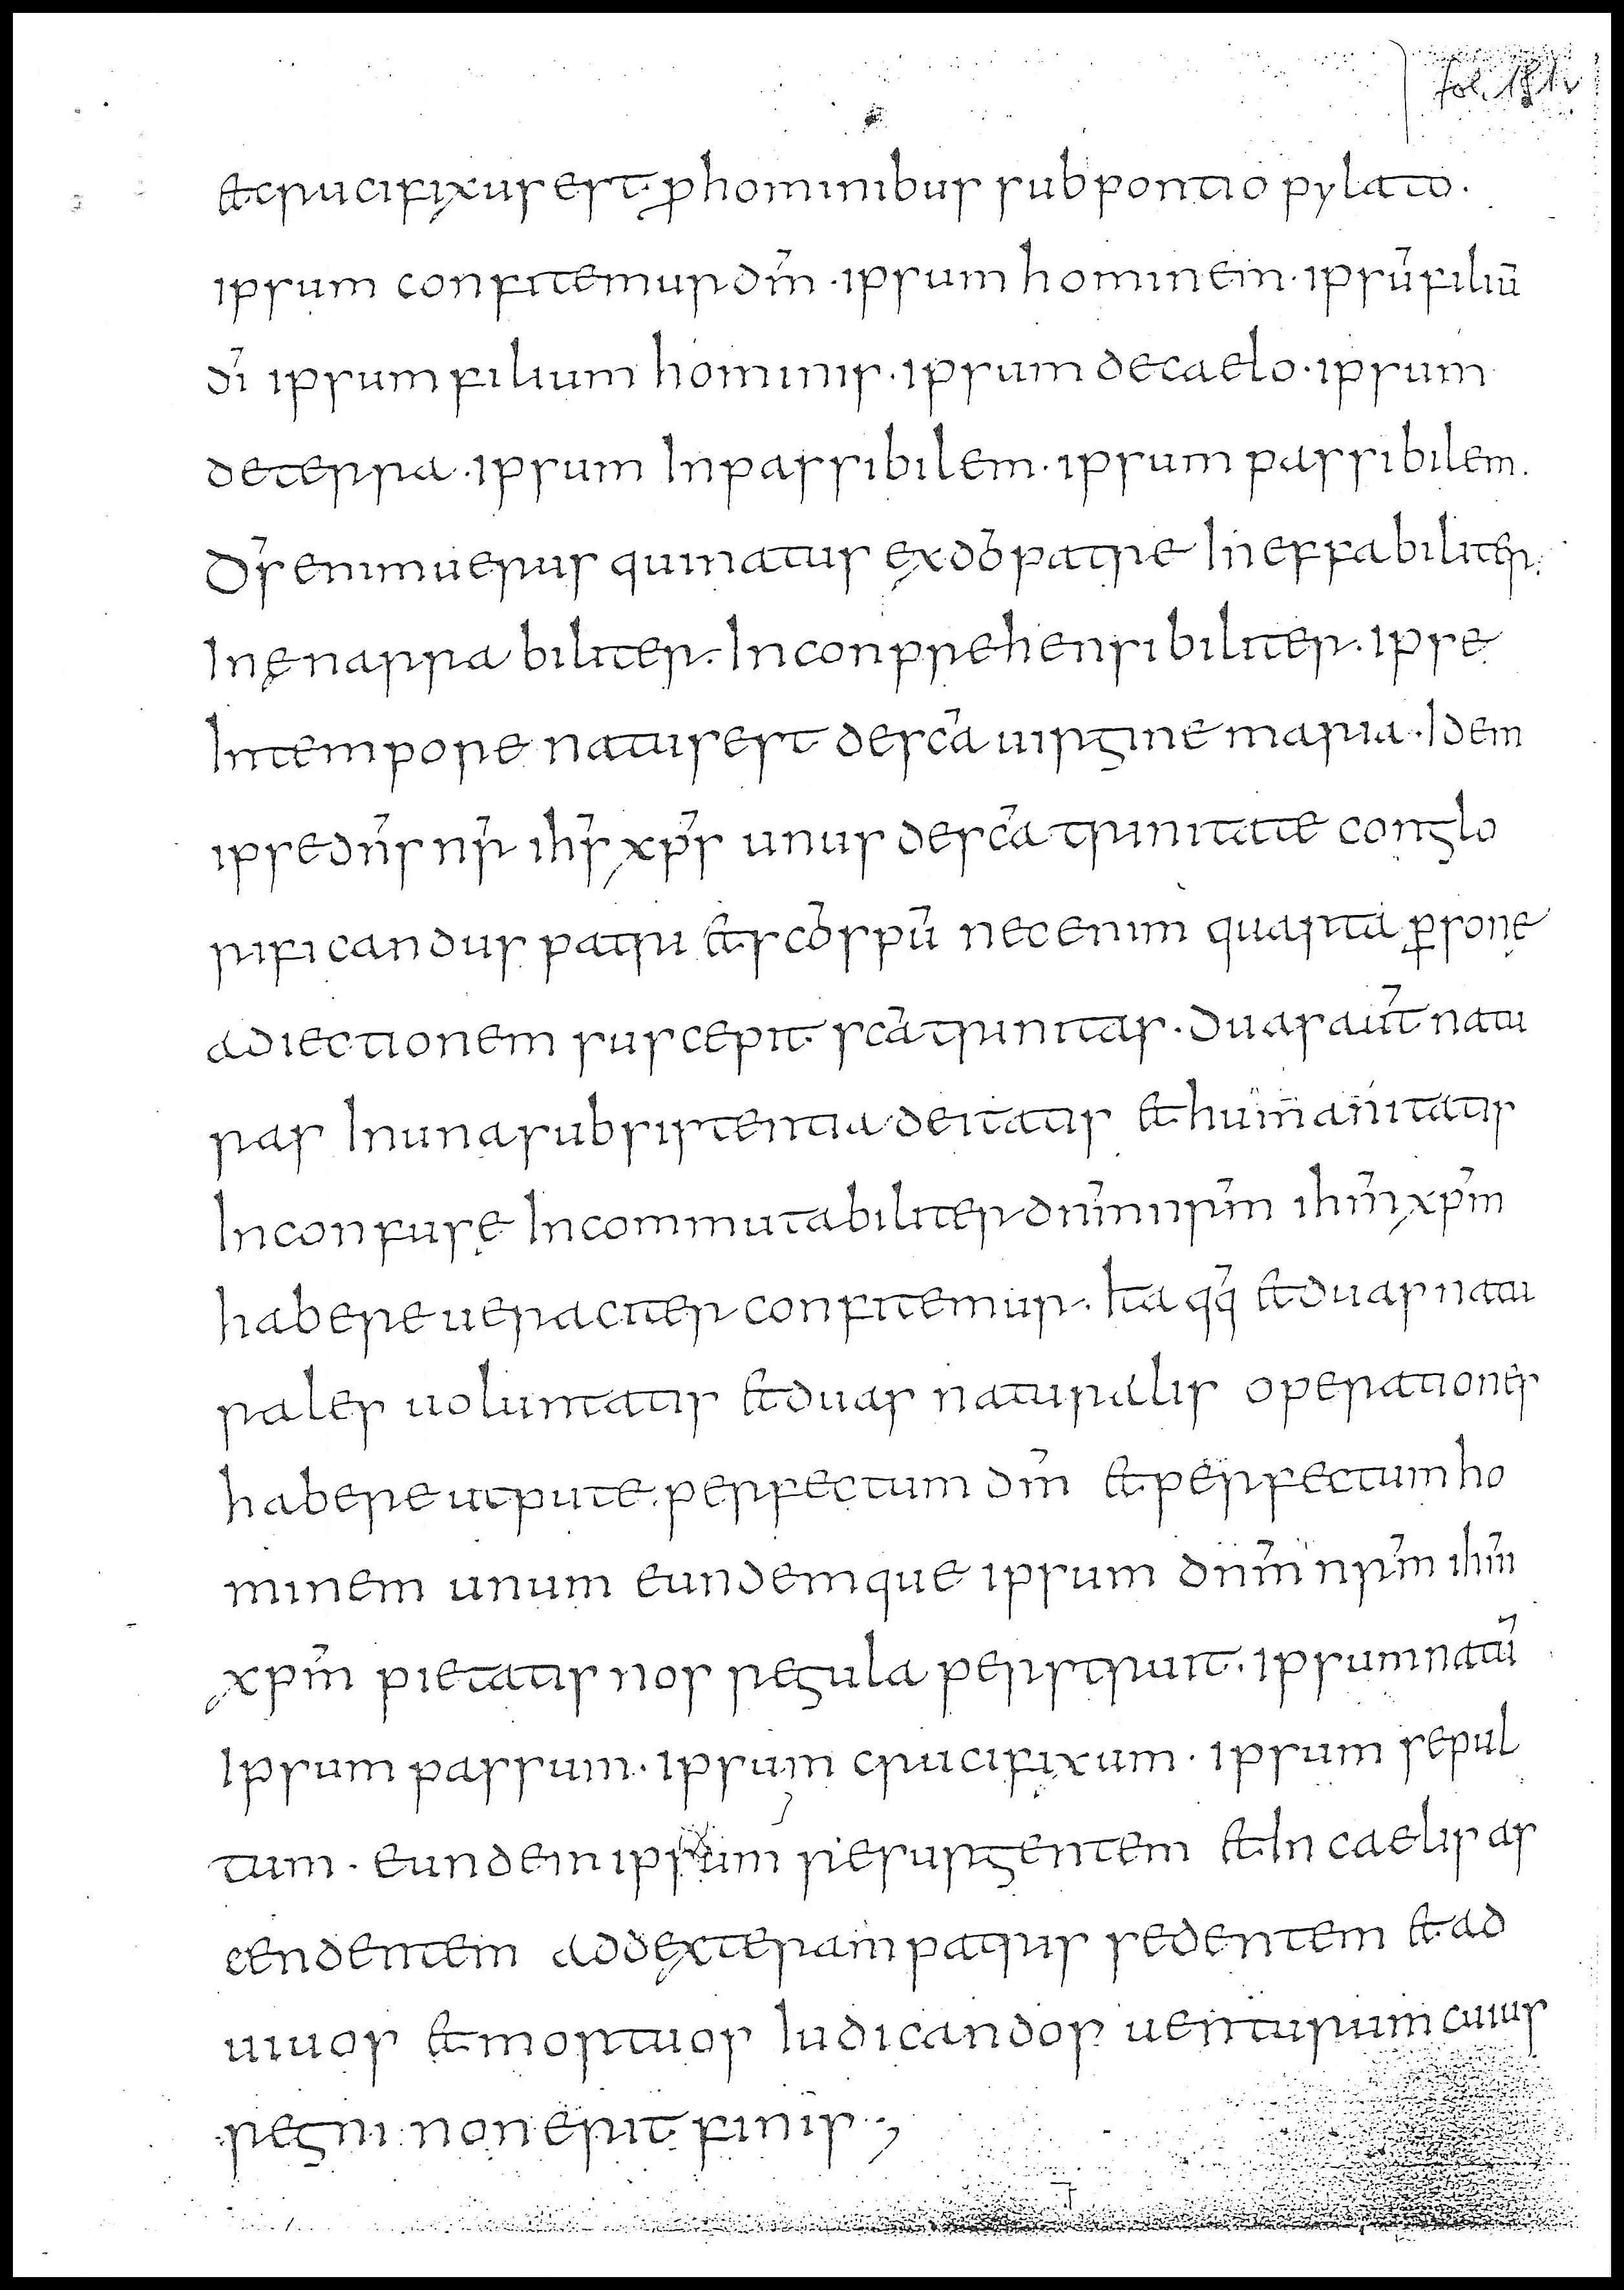 fol. 181v
et crucifixus est p̱ hominibus sub pontio pylato.
ipsum confitemur dm̄ · ipsum hominem · ipsū filiū
dī ipsum filium hominis · ipsum de caelo · ipsum
de terra · ipsum Inpassibilem · ipsum passibilem.
Ds̄ enim uerus qui natus ex dō patre Ineffabiliter.
Inęnarrabiliter. Inconprehensibiliter. ipse
In tempore natus est de scā uirgine maria · Idem
ipse dns̄ nr̄ ihs̄ xps̄ unus de scā trinitate conglo
rificandus patri et scō spū nec enim quarta p̱sonę
adiectionem suscepit scā trinitas · duas aut̄ natu
ras In una subsistentia deitatis et humanitatis
Inconfusę Incommutabiliter dnm̄ nrm̄ ihm̄ xpm̄
habere ueraciter confitemur. Ita qq̄ et duas natu
rales uoluntatis et duas naturalis operationes
habere utpute perfectum dm̄ et perfectum ho
minem unum eundemque ipsum dnm̄ nrm̄ ihm̄
xpm̄ pietatis nos regula perstruit. ipsum natū
Ipsum passum · ipsum crucifixum · ipsum sepul
tum · eundem ipsum resurgentem et In caelis as
cendentem ad dexteram patris sedentem et ad
uiuos et mortuos Iudicandos uenturum cuius
regni non erit finis ·,